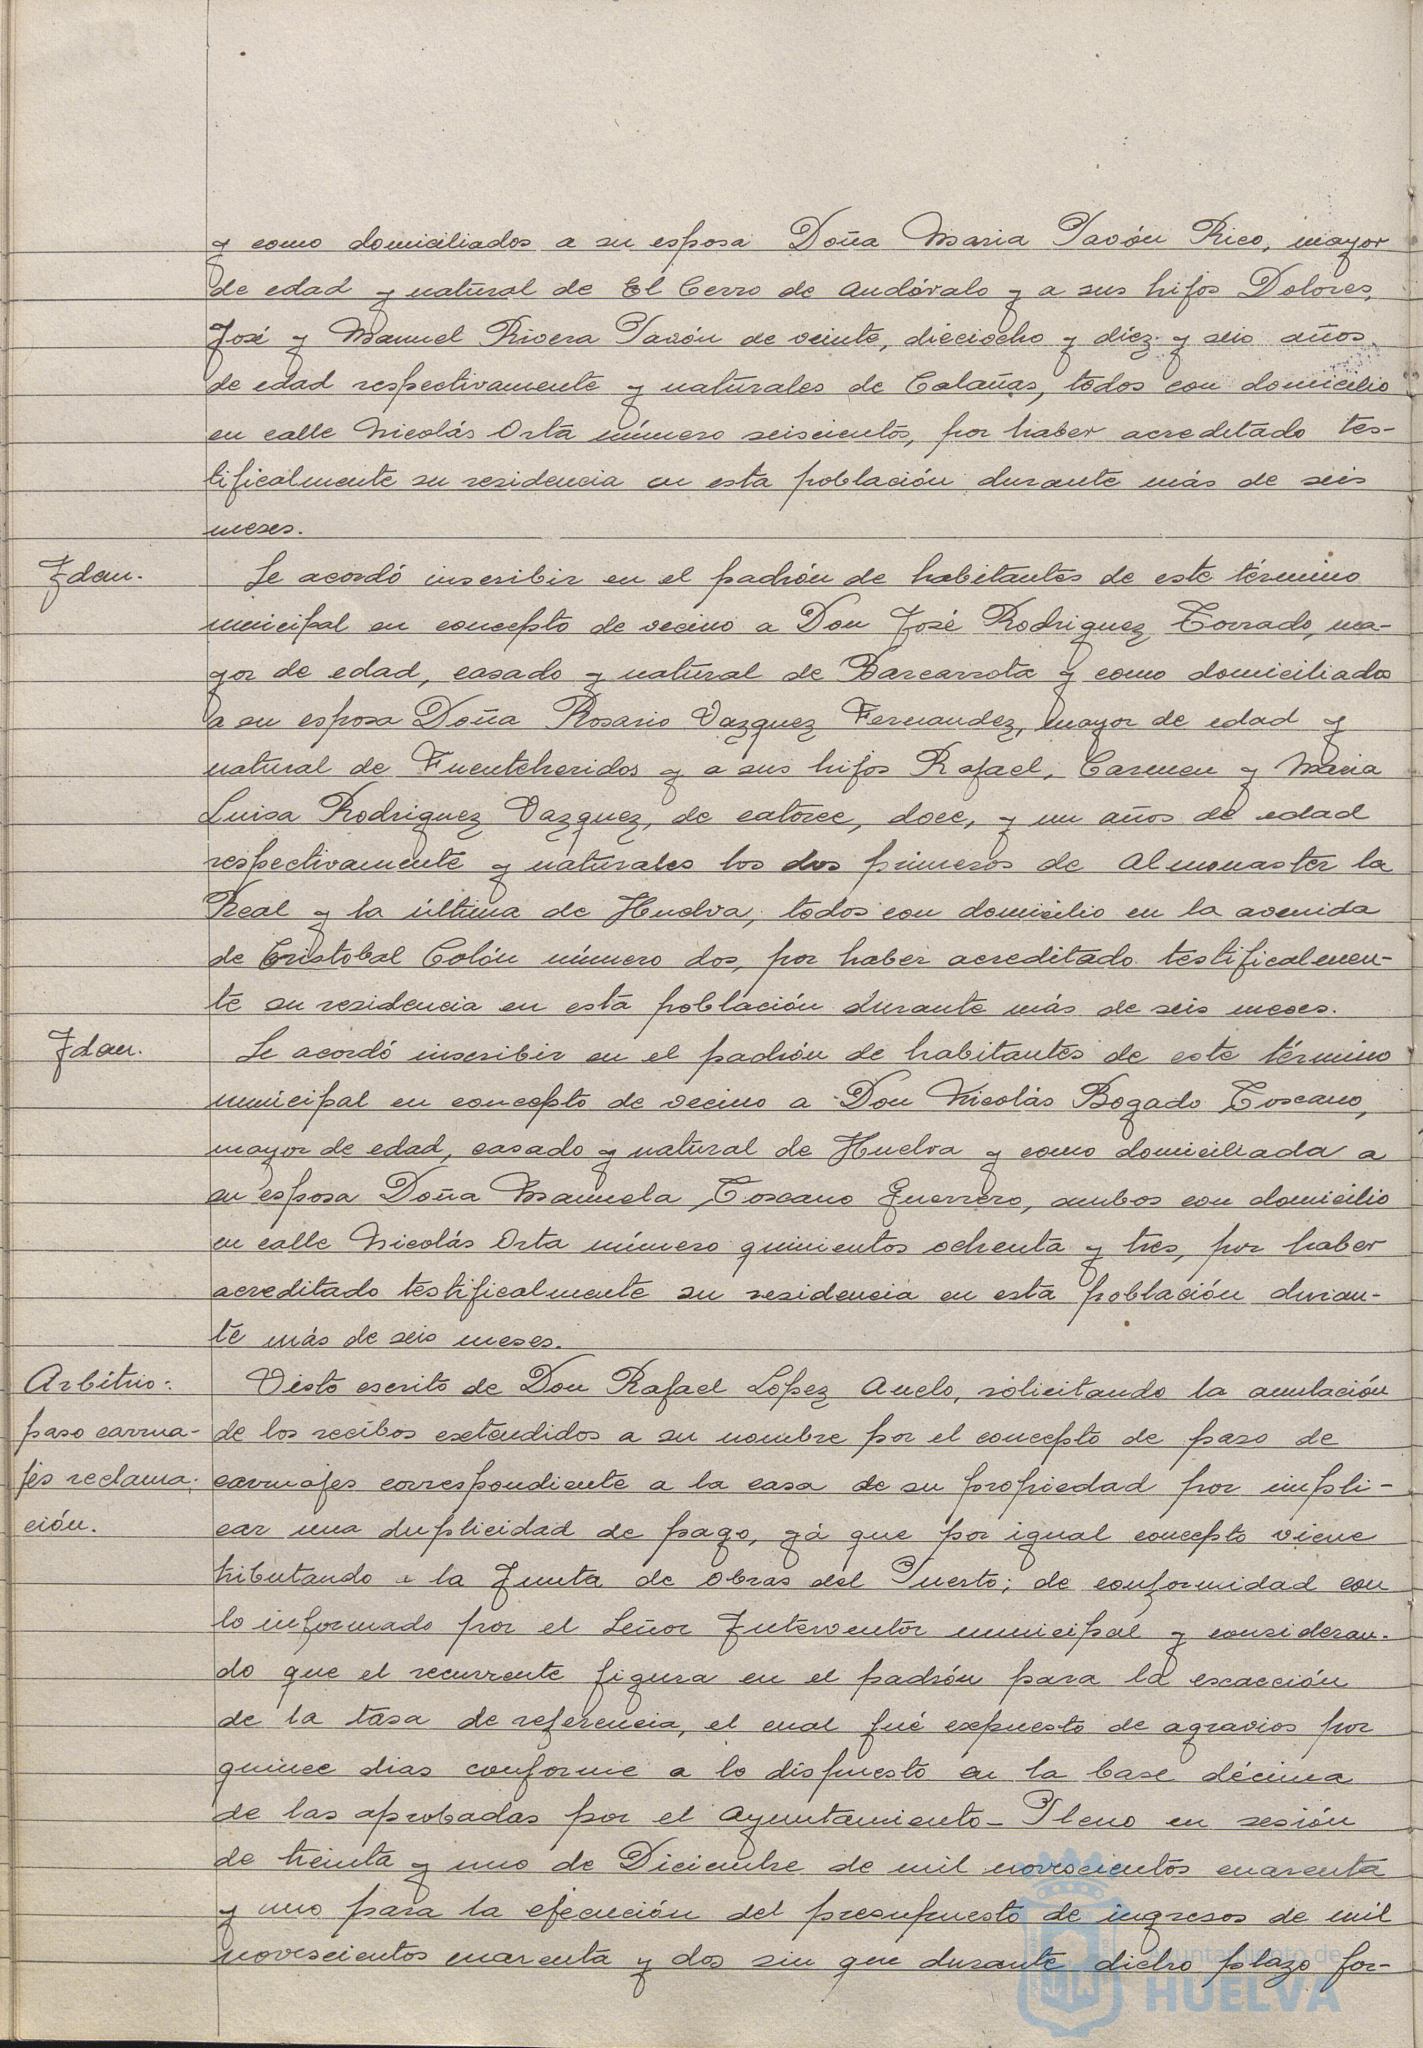 y como domiciliados a su esposa Doña Maria Pavón Rico, mayor
de edad y natural de El Cerro de Andévalo y a sus hijos Dolores,
José y Manuel Rivera Pavón de veinte, dieciocho y diez y seis años
de edad respectivamente y naturales de Calañas, todos con domicilio
en calle Nicolás Orta número seiscientos, por haber acreditado tes-
tificalmente su residencia en esta población durante más de seis
meses.
Idem.
Se acordó inscribir en el padrón de habitantes de este término
municipal en concepto de vecino a Don José Rodriguez Torrado, ma-
yor de edad, casado y natural de Barcarrota y como domiciliados
a su esposa Doña Rosario Vazquez Fernandez, mayor de edad y
natural de Fuenteheridos y a sus hijos Rafael, Carmen y Maria
Luisa Rodriguez Vazquez, de catorce, doce, y un años de edad
respectivamente y naturales los dos primeros de Almonaster la
Real y la última de Huelva, todos con domicilio en la avenida
de Cristobal Colón número dos, por haber acreditado testificalmen-
te su residencia en esta población durante más de seis meses.
Idem.
Se acordó inscribir en el padrón de habitantes de este término
municipal en concepto de vecino a Don Nicolás Bogado Toscano,
mayor de edad, casado y natural de Huelva y como domiciliada a
su esposa Doña Manuela Toscano Guerrero, ambos con domicilio
en calle Nicolás Orta número quinientos ochenta y tres, por haber
acreditado testificalmente su residencia en esta población duran-
te más de seis meses.
Arbitrio:
paso carrua-
jes reclama-
ción.
Visto escrito de Don Rafael López Anelo, solicitando la anulación
de los recibos extendidos a su nombre por el concepto de paso de
carruajes correspondiente a la casa de su propiedad por impli-
car una duplicidad de pago, yá que por igual concepto viene
tributando a la Junta de Obras del Puerto; de conformidad con
lo informado por el Señor Interventor municipal y consideran-
do que el recurrente figura en el padrón para la escacción
de la tasa de referencia, el cual fué expuesto de agravios por
quince dias conforme a lo dispuesto en la base décima
de las aprobadas por el Ayuntamiento-Pleno en sesión
de treinta y uno de Diciembre de mil novecientos cuarenta
y uno para la ejecución del presupuesto de ingresos de mil
novescientos cuarenta y dos sin que durante dicho plazo for-
Ayuntamiento de
HUELVA